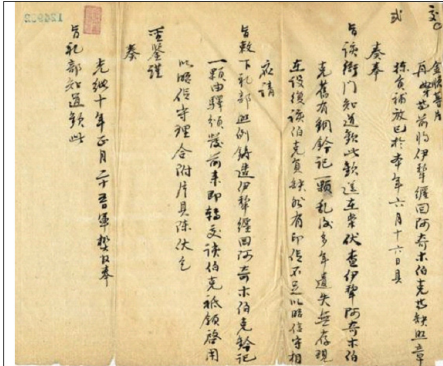 交
金順等片
再伊犁纏回阿奇木伯克缺照章
揀員補放已於本年六月十六日具
奏奉
旨該衙門知道欽此欽遵在案伏查伊犁阿奇木伯
克舊有銅鈐記一顆亂後多年遺失無存現
在設復該伯克員缺所有印信不足以昭信守相
應請
旨敕下禮部照例鑄造伊犁纏回阿奇木伯克鈐記
一顆由驛頒發前來即轉交該伯克祗領啓用
以昭信守理合附片具陳伏乞
聖鑒謹
奏
光緒十年正月二十五日軍機大臣奉
旨禮部知道欽此